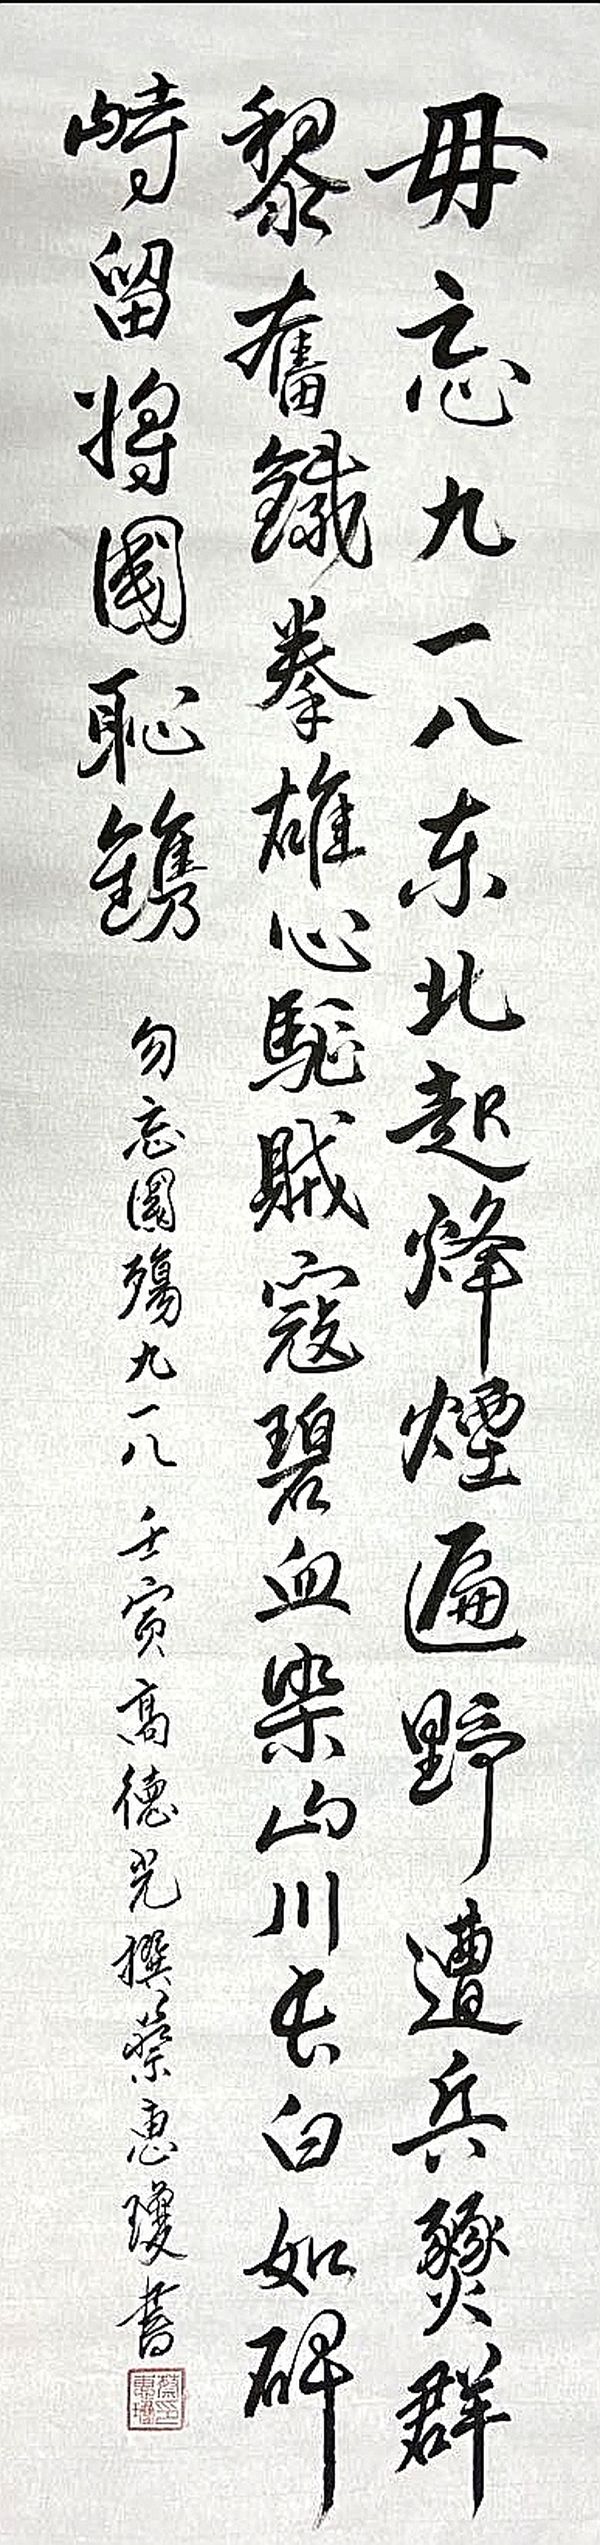 毋忘九一八东北起烽煙遍野遭兵燹群
黎奮鐵拳雄心駈賊寇碧血染山川长白如碑
峙留将國恥鐫
勿忘國殤九一八 壬寅高德光撰蔡惠瓊書
蔡惠瓊印